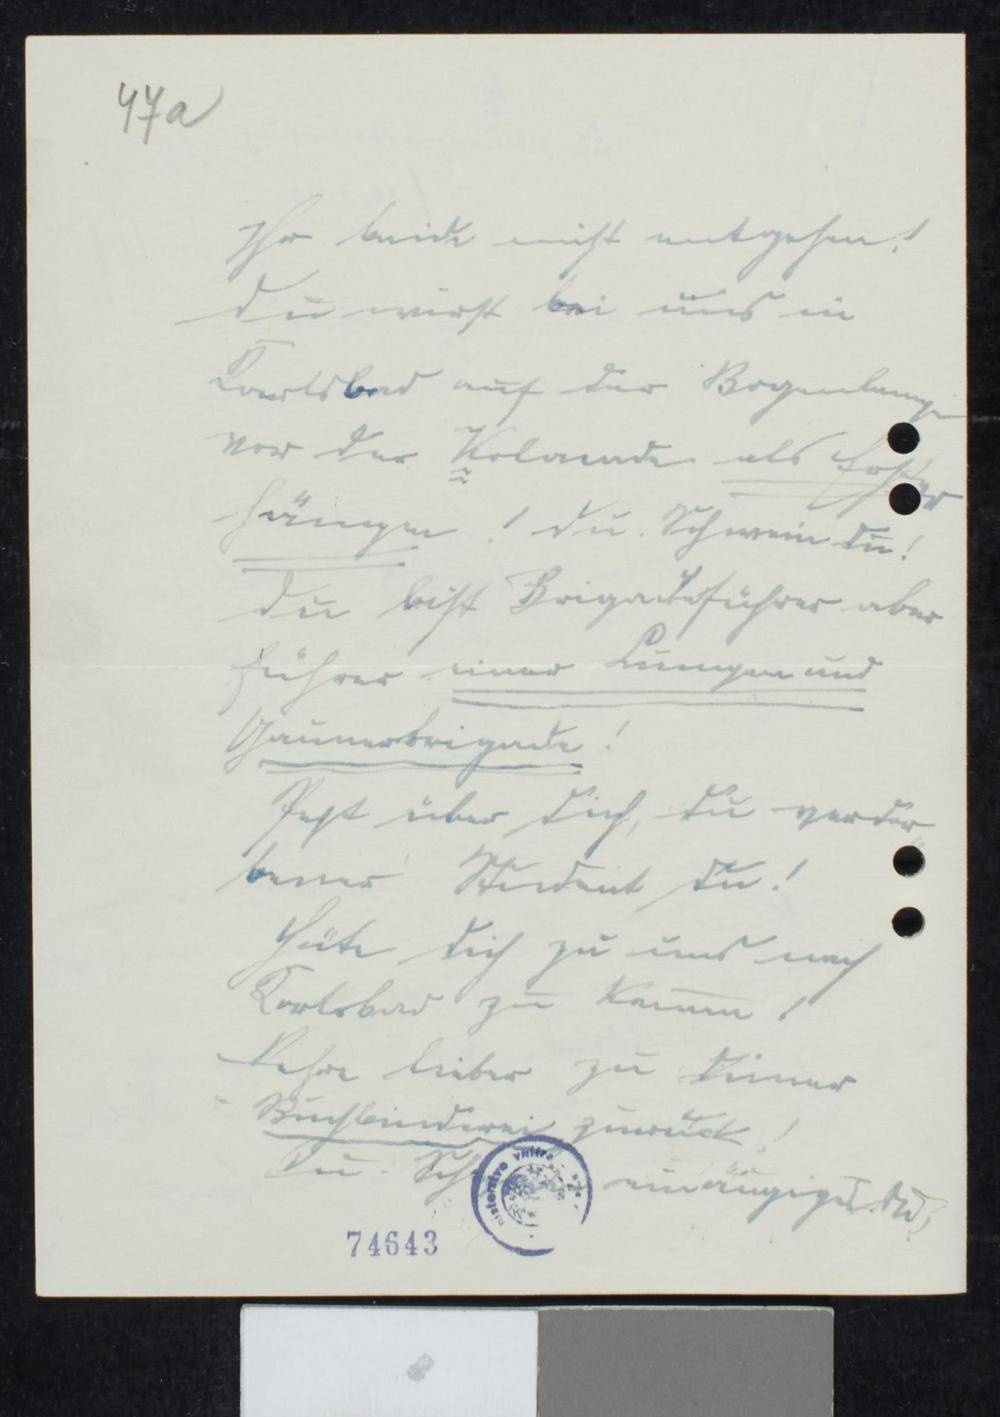 47a
Ihr beide nicht entgehen!
Du wirst bei uns in
Karlsbad auf der Bogenlampe
vor der Kolonade als Erster
hängen! Du Schwein du!
Du bist Brigadeführer aber
Führer einer Lumpen und
Gaunerbrigade!
Pest über dich, du verdor
bener Student du!
Hüte dich zu uns nach
Karlsbad zu kommen!
Kehre lieber zu deiner
Buchbinderei zurück!
Du einäugiges du,
nisterstvo vnitra
74643